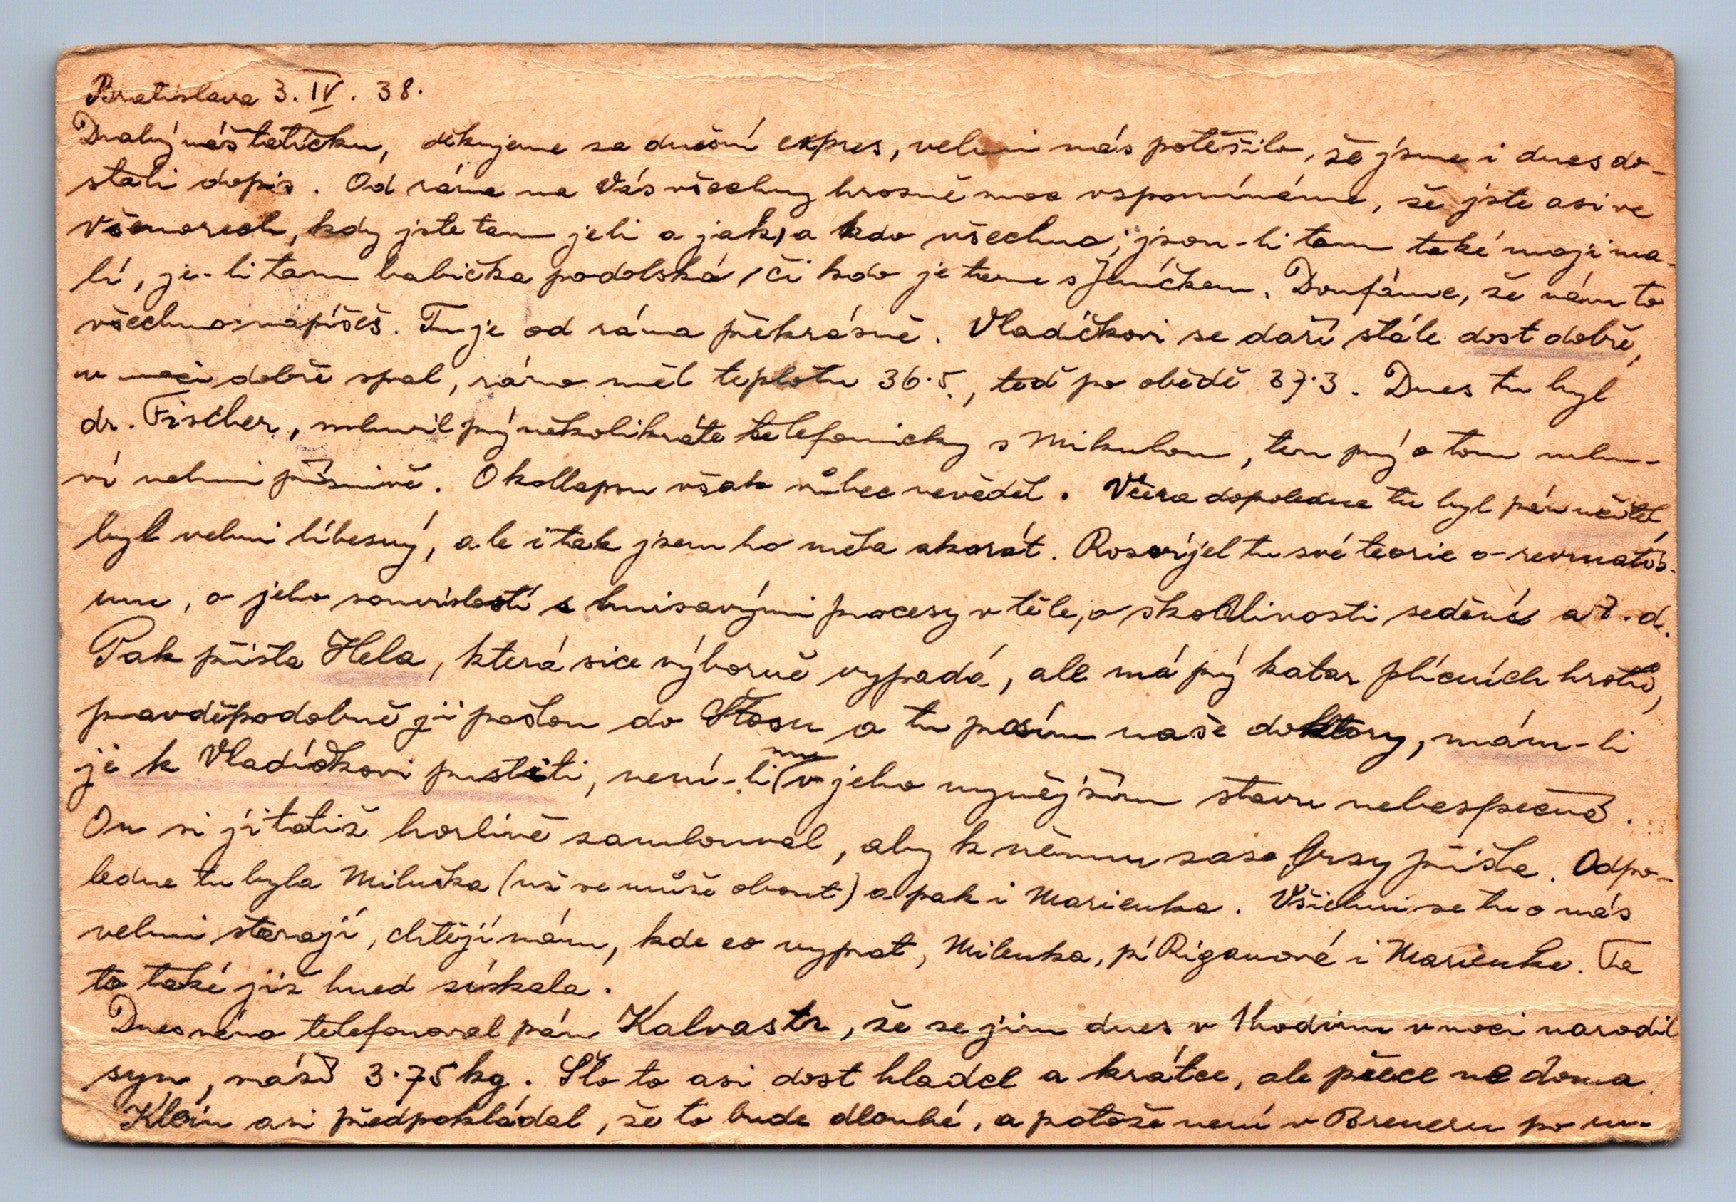 Bratislava 3. IV. 38.
Drahý náš tatíčku, děkujeme za dnešní expres, velmi nás potěšilo, že jsme i dnes do-
stali dopis. Od rána na Vás všechny hrozně moc vspomínáme, že jste asi ve
Všenorech, kdy jste tam jeli a jak, a kdo všechno; jsou-li tam také moji ma-
lí, je-li tam babička podolská, či kdo je tam s Jeníčkem. Doufáme, že nám to
všechno napíšeš. Tu je od rána překrásně. Vladíčkovi se daří stále dost dobře,
v noci dobře spal, ráno měl teplotu 36.5, teď po obědě 37.3. Dnes tu byl
dr. Fischer, mluvil prý několikráte telefonicky s Mikulou, ten prý o tom mlu-
ví velmi příznivě. O kollapsu však vůbec nevěděl. Včera dopoledne tu byl pán učitel,
byl velmi líbezný, ale i tak jsem ho měla akorát. Rozvíjel tu své teorie o revmatis-
mu, o jeho souvislosti s hnisavými procesy v těle, o škodlivosti sedění a t. d.
Pak přišla Hela, která sice výborně vypadá, ale má prý katar plícních hrotů,
pravděpodobně ji pošlou do Štosu a tu prosím naše doktory, mám-li
ji k Vladíčkovi pustiti, není-li mu v jeho nynějším stavu nebezpečná.
On si ji totiž horlivě zamlouval, aby k němu zase brzy přišla. Odpo-
ledne tu byla Miluška (už se může obout) a pak i Marienka. Všichni se tu o nás
velmi starají, chtějí nám, kde co vyprat, Milenka, pí Riganová i Marienka. Ta
to také již hned získala.
Dnes ráno telefonoval pán Kalvastr, že se jim dnes v 1 hodinu v noci narodil
syn, váží 3.75 kg. Šlo to asi dost hladce a krátce, ale přece ne doma
Klein asi předpokládal, že to bude dlouhé, a protože není v Breueru po ru-